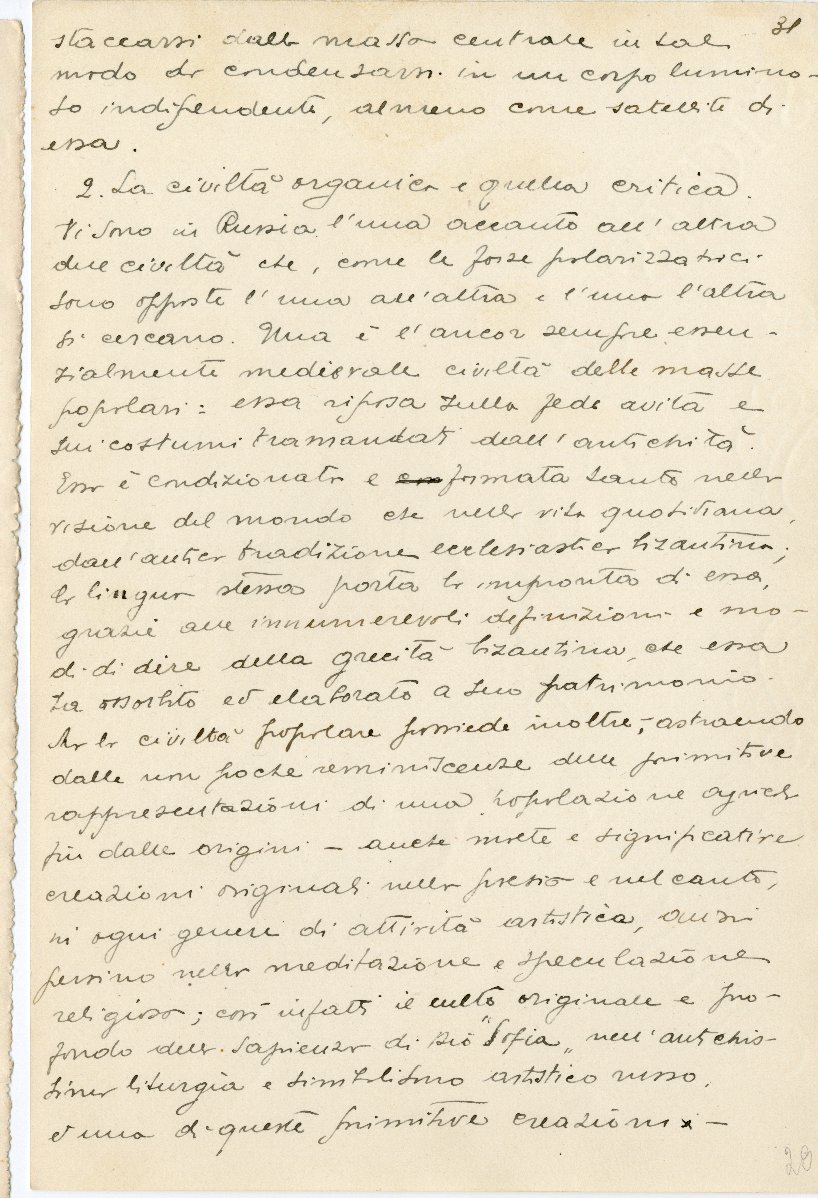 31
staccarsi dalla massa centrale in tal
modo da condensarsi in un corpo lumino-
so indipendente, almeno come satellite di
essa.
2. La civiltà organica e quella critica.
Vi sono in Russia l'una accanto all'altra
due civiltà che, come le forze polarizzatrici
sono opposte l'una all'altra e l'una l'altra
si cercano. Una è l'ancor sempre essen-
zialmente medievale civiltà delle masse
popolari: essa riposa sulla fede avita e
sui costumi tramandati dall'antichità.
Essa è condizionata e formata tanto nella
visione del mondo che nella vita quotidiana,
dall'antica tradizione ecclesiastica bizantina;
la lingua stessa porta la impronta di essa,
grazie alle innumerevoli definizioni e mo-
di di dire della grecità bizantina, che essa
ha assorbito ed elaborato a suo patrimonio.
Ma la civiltà popolare possiede inoltre, - astraendo
dalle non poche reminiscenze delle primitive
rappresentazioni di una popolazione agricola
fin dalle origini — anche molte e significative
creazioni originali nella poesia e nel canto,
in ogni genere di attività artistica, anzi
persino nella meditazione e speculazione
religiosa; così infatti il culto originale e pro-
fondo della Sapienza di Dio "Sofia" nell'antichis-
sima liturgia e simbolismo artistico russo,
è una di queste primitive creazioni. —
29